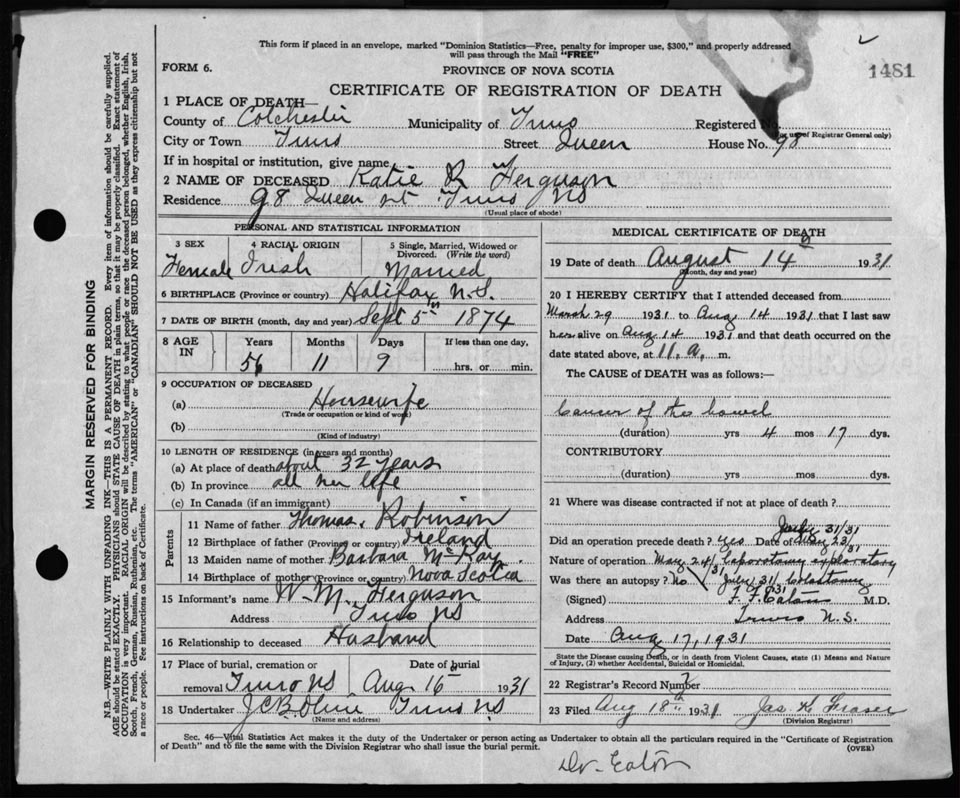 This form if placed in an envelope, marked "Dominion Statistics—Free, penalty for improper use, $300," and properly addressed
will pass through the Mail "FREE"
FORM 6.
PROVINCE OF NOVA SCOTIA
1481
CERTIFICATE OF REGISTRATION OF DEATH
1 PLACE OF DEATH—
County of Colchester Municipality of Truro Registered No.
(For use of Registrar General only)
City or Town Truro Street Queen House No. 98
If in hospital or institution, give name
2 NAME OF DECEASED Katie R Ferguson
Residence 98 Queen St Truro NS
(Usual place of abode)
PERSONAL AND STATISTICAL INFORMATION
3 SEX 4 RACIAL ORIGIN 5 Single, Married, Widowed or
Divorced. (Write the word)
Female Irish Married
6 BIRTHPLACE (Province or country) Halifax N.S.
7 DATE OF BIRTH (month, day and year) Sept 5th 1874
8 AGE IN Years Months Days If less than one day,
56 11 9 hrs. or min.
9 OCCUPATION OF DECEASED
(a) Housewife
(Trade or occupation or kind of work)
(b)
(Kind of industry)
10 LENGTH OF RESIDENCE (in years and months)
(a) At place of death about 32 years
(b) In province all her life
(c) In Canada (if an immigrant)
Parents
11 Name of father Thomas Robinson
12 Birthplace of father (Province or country) Ireland
13 Maiden name of mother Barbara McKay
14 Birthplace of mother (Province or country) Nova Scotia
15 Informant's name W. M. Ferguson
Address Truro NS
16 Relationship to deceased Husband
17 Place of burial, cremation or Date of burial
removal Truro NS Aug 16th 1931
18 Undertaker Truro NS
(Name and address)
MEDICAL CERTIFICATE OF DEATH
19 Date of death August 14th 1931
(Month, day and year)
20 I HEREBY CERTIFY that I attended deceased from
March 29 1931 to Aug 14 1931 that I last saw
her alive on Aug 14 1931 and that death occurred on the
date stated above, at 11 a. m.
The CAUSE OF DEATH was as follows:
Cancer of the bowel
(duration) yrs 4 mos 17 dys.
CONTRIBUTORY
(duration) yrs mos dys.
21 Where was disease contracted if not at place of death?
July 31/31
Did an operation precede death? yes Date of May 23/31
Nature of operation May 24/31 Laporotomy exploratory
Was there an autopsy? No July 31/31 Colostomy
(Signed) F. F. Eaton M.D.
Address Truro N.S.
Date Aug 17, 1931
State the Disease causing Death, or in death from Violent Causes, state (1) Means and Nature
of Injury, (2) whether Accidental, Suicidal or Homicidal.
22 Registrar's Record Number
23 Filed Aug 18th 1931 Jas K Fraser
(Division Registrar)
Sec. 46—Vital Statistics Act makes it the duty of the Undertaker or person acting as Undertaker to obtain all the particulars required in the "Certificate of Registration
of Death" and to file the same with the Division Registrar who shall issue the burial permit.
(OVER)
Dr. Eaton
MARGIN RESERVED FOR BINDING
N.B.—WRITE PLAINLY WITH UNFADING INK—THIS IS A PERMANENT RECORD. Every item of information should be carefully supplied.
AGE should be stated EXACTLY. PHYSICIANS should STATE CAUSE OF DEATH in plain terms, so that it may be properly classified. Exact statement of
OCCUPATION is very important. RACIAL ORIGIN will be described by stating to what people or race the deceased person belonged, whether English, Irish,
Scotch, French, German, Russian, Ruthenian, etc. The terms "AMERICAN" or "CANADIAN" SHOULD NOT BE USED as they express citizenship but not
a race or people. Fee instructions on back of Certificate.